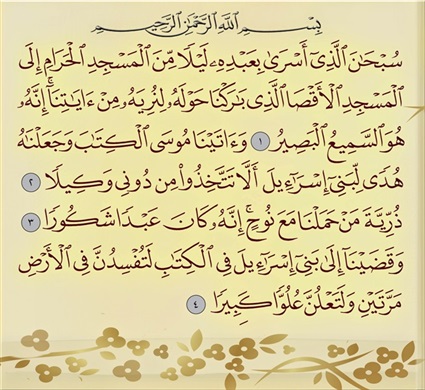 بِسْمِ اللَّهِ الرَّحْمَٰنِ الرَّحِيمِ
سُبْحَانَ الَّذِي أَسْرَىٰ بِعَبْدِهِ لَيْلًا مِنَ الْمَسْجِدِ الْحَرَامِ إِلَى
الْمَسْجِدِ الْأَقْصَا الَّذِي بَارَكْنَا حَوْلَهُ لِنُرِيَهُ مِنْ ءَايَاتِنَا إِنَّهُ
هُوَ السَّمِيعُ الْبَصِيرُ ١ وَءَاتَيْنَا مُوسَى الْكِتَابَ وَجَعَلْنَاهُ
هُدًى لِبَنِي إِسْرَاءِيلَ أَلَّا تَتَّخِذُوا مِنْ دُونِي وَكِيلًا ٢
ذُرِّيَّةَ مَنْ حَمَلْنَا مَعَ نُوحٍ إِنَّهُ كَانَ عَبْدًا شَكُورًا ٣
وَقَضَيْنَا إِلَىٰ بَنِي إِسْرَاءِيلَ فِي الْكِتَابِ لَتُفْسِدُنَّ فِي الْأَرْضِ
مَرَّتَيْنِ وَلَتَعْلُنَّ عُلُوًّا كَبِيرًا ٤